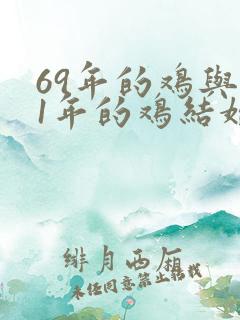 69年的鸡與
1年的鸡結婚
緋月西厢
未经同意禁止转载